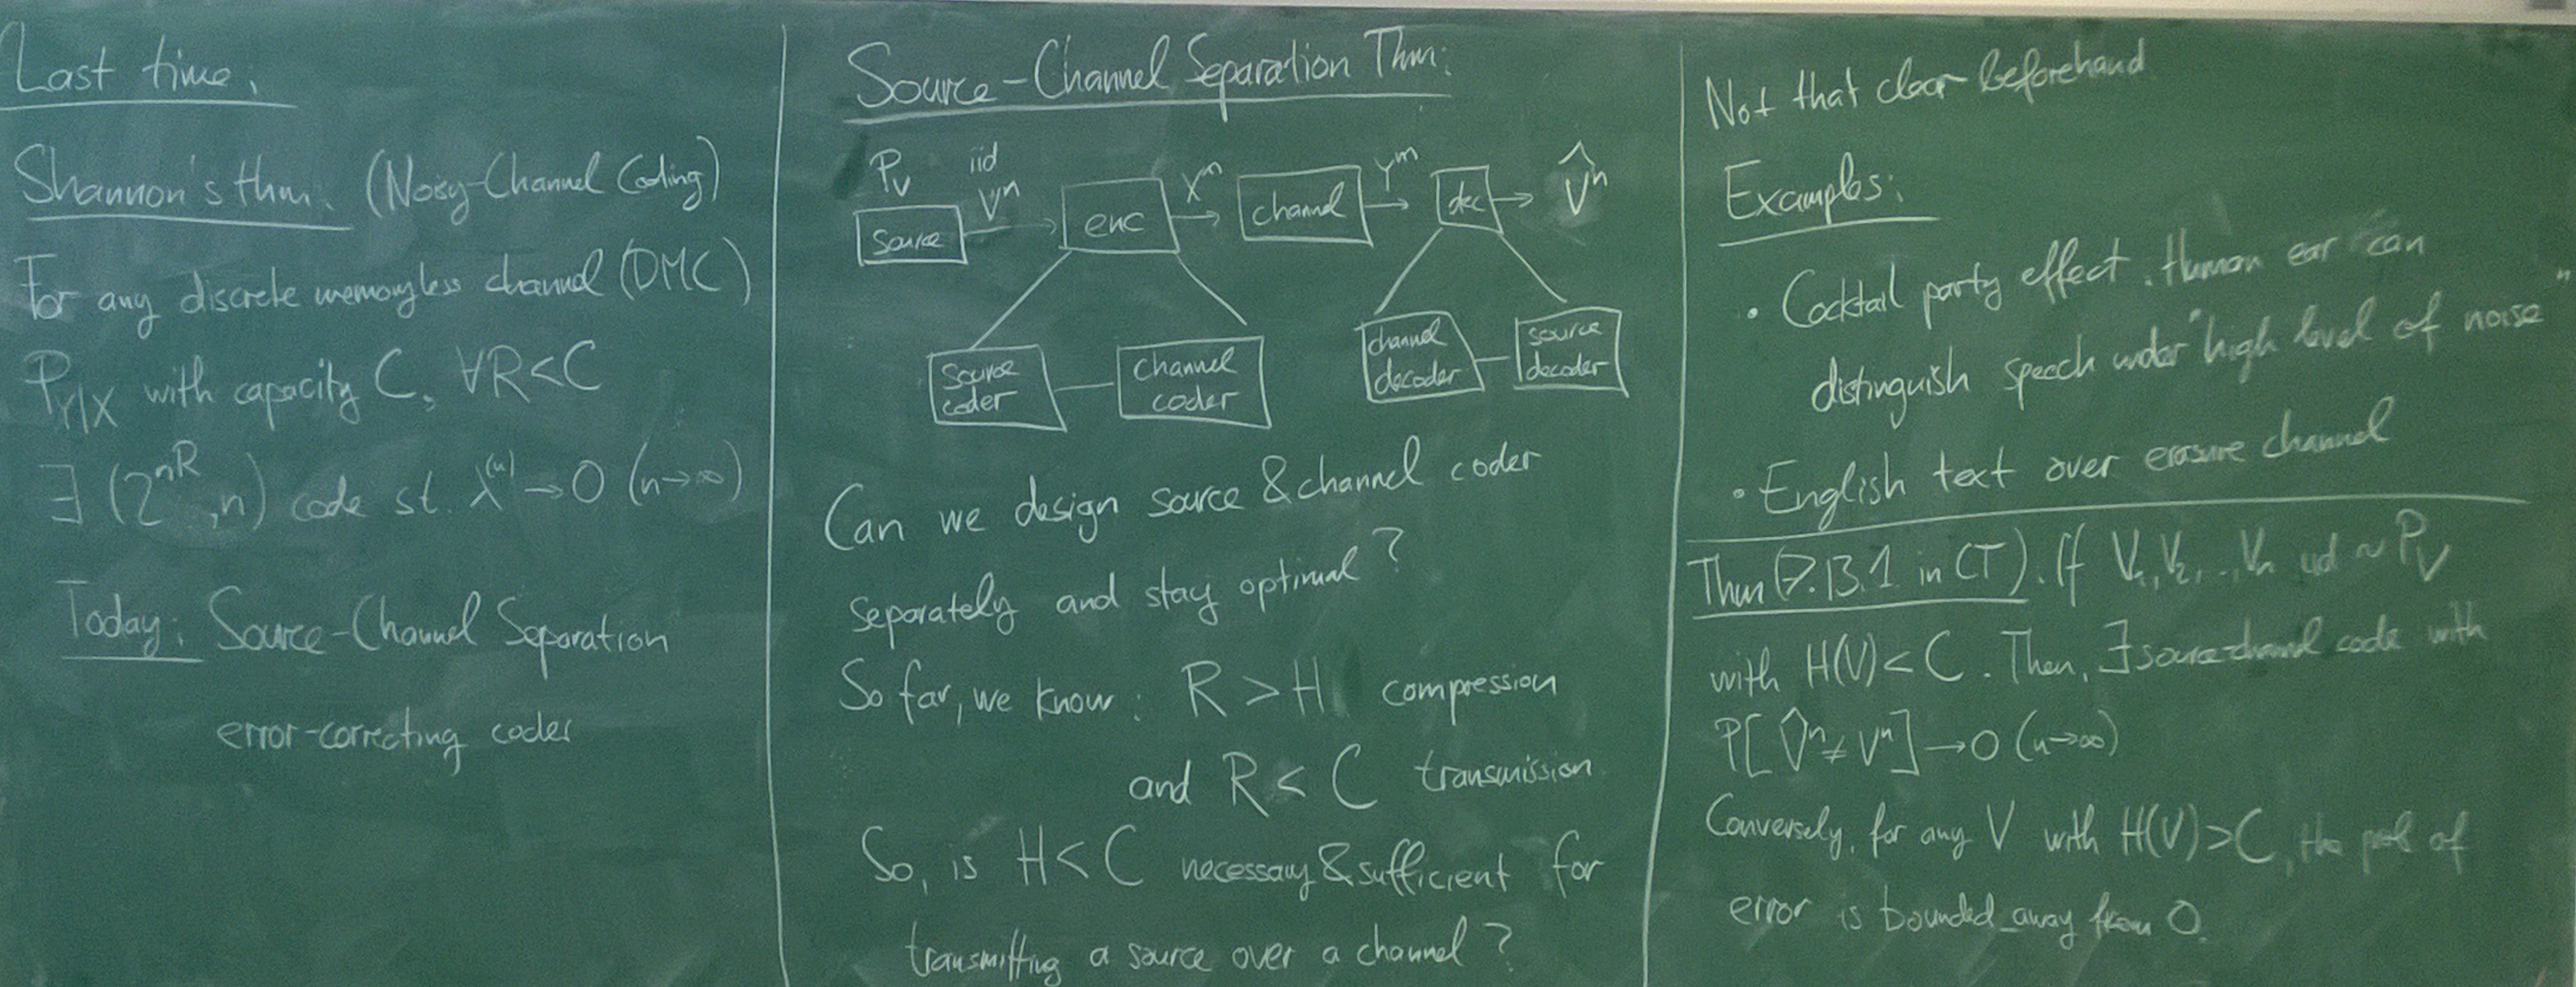 Last time:
Shannon's thm. (Noisy-Channel Coding)
For any discrete memoryless channel (DMC)
P_{Y|X} with capacity C, ∀R<C
∃ (2^{nR}, n) code st. λ^{(n)} → 0 (n→∞)
Today: Source-Channel Separation
error-correcting codes
Source-Channel Separation Thm:
P_V iid
source V^n → enc X^m → channel Y^m → dec → V̂^n
source coder
channel coder
channel decoder
source decoder
Can we design source & channel coder
separately and stay optimal?
So far, we know: R > H compression
and R < C transmission
So, is H < C necessary & sufficient for
transmitting a source over a channel?
Not that clear beforehand
Examples:
• Cocktail party effect. Human ear can
distinguish speech under "high level of noise"
• English text over erasure channel
Thm (7.13.1 in CT). If V_1, V_2, .., V_n iid ~ P_V
with H(V) < C. Then, ∃ source-channel code with
P[V̂^n ≠ V^n] → 0 (n→∞)
Conversely, for any V with H(V) > C, the prob of
error is bounded away from 0.